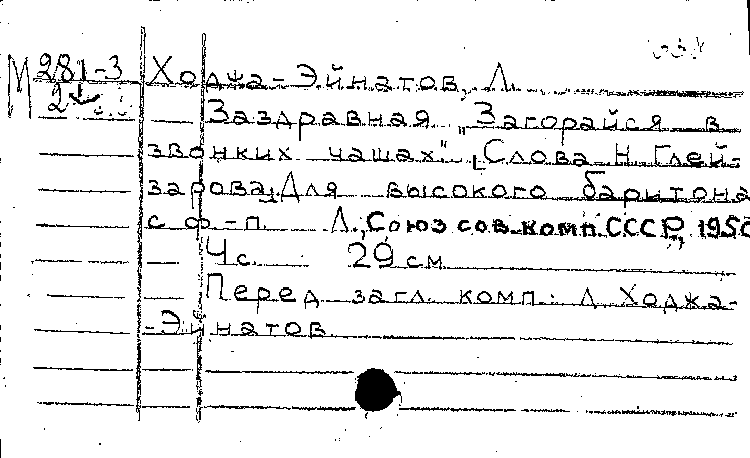 М 281-3 Ходжа-Эйнатов, Л.
2
Заздравная „Загорайся в
звонких чашах". [Слова Н. Глей-
зарова]. Для высокого баритона
с ф.-п. Л., Союз сов. комп. СССР, 1950
4 с. 29 см
Перед загл. комп.: Л. Ходжа-
-Эйнатов.